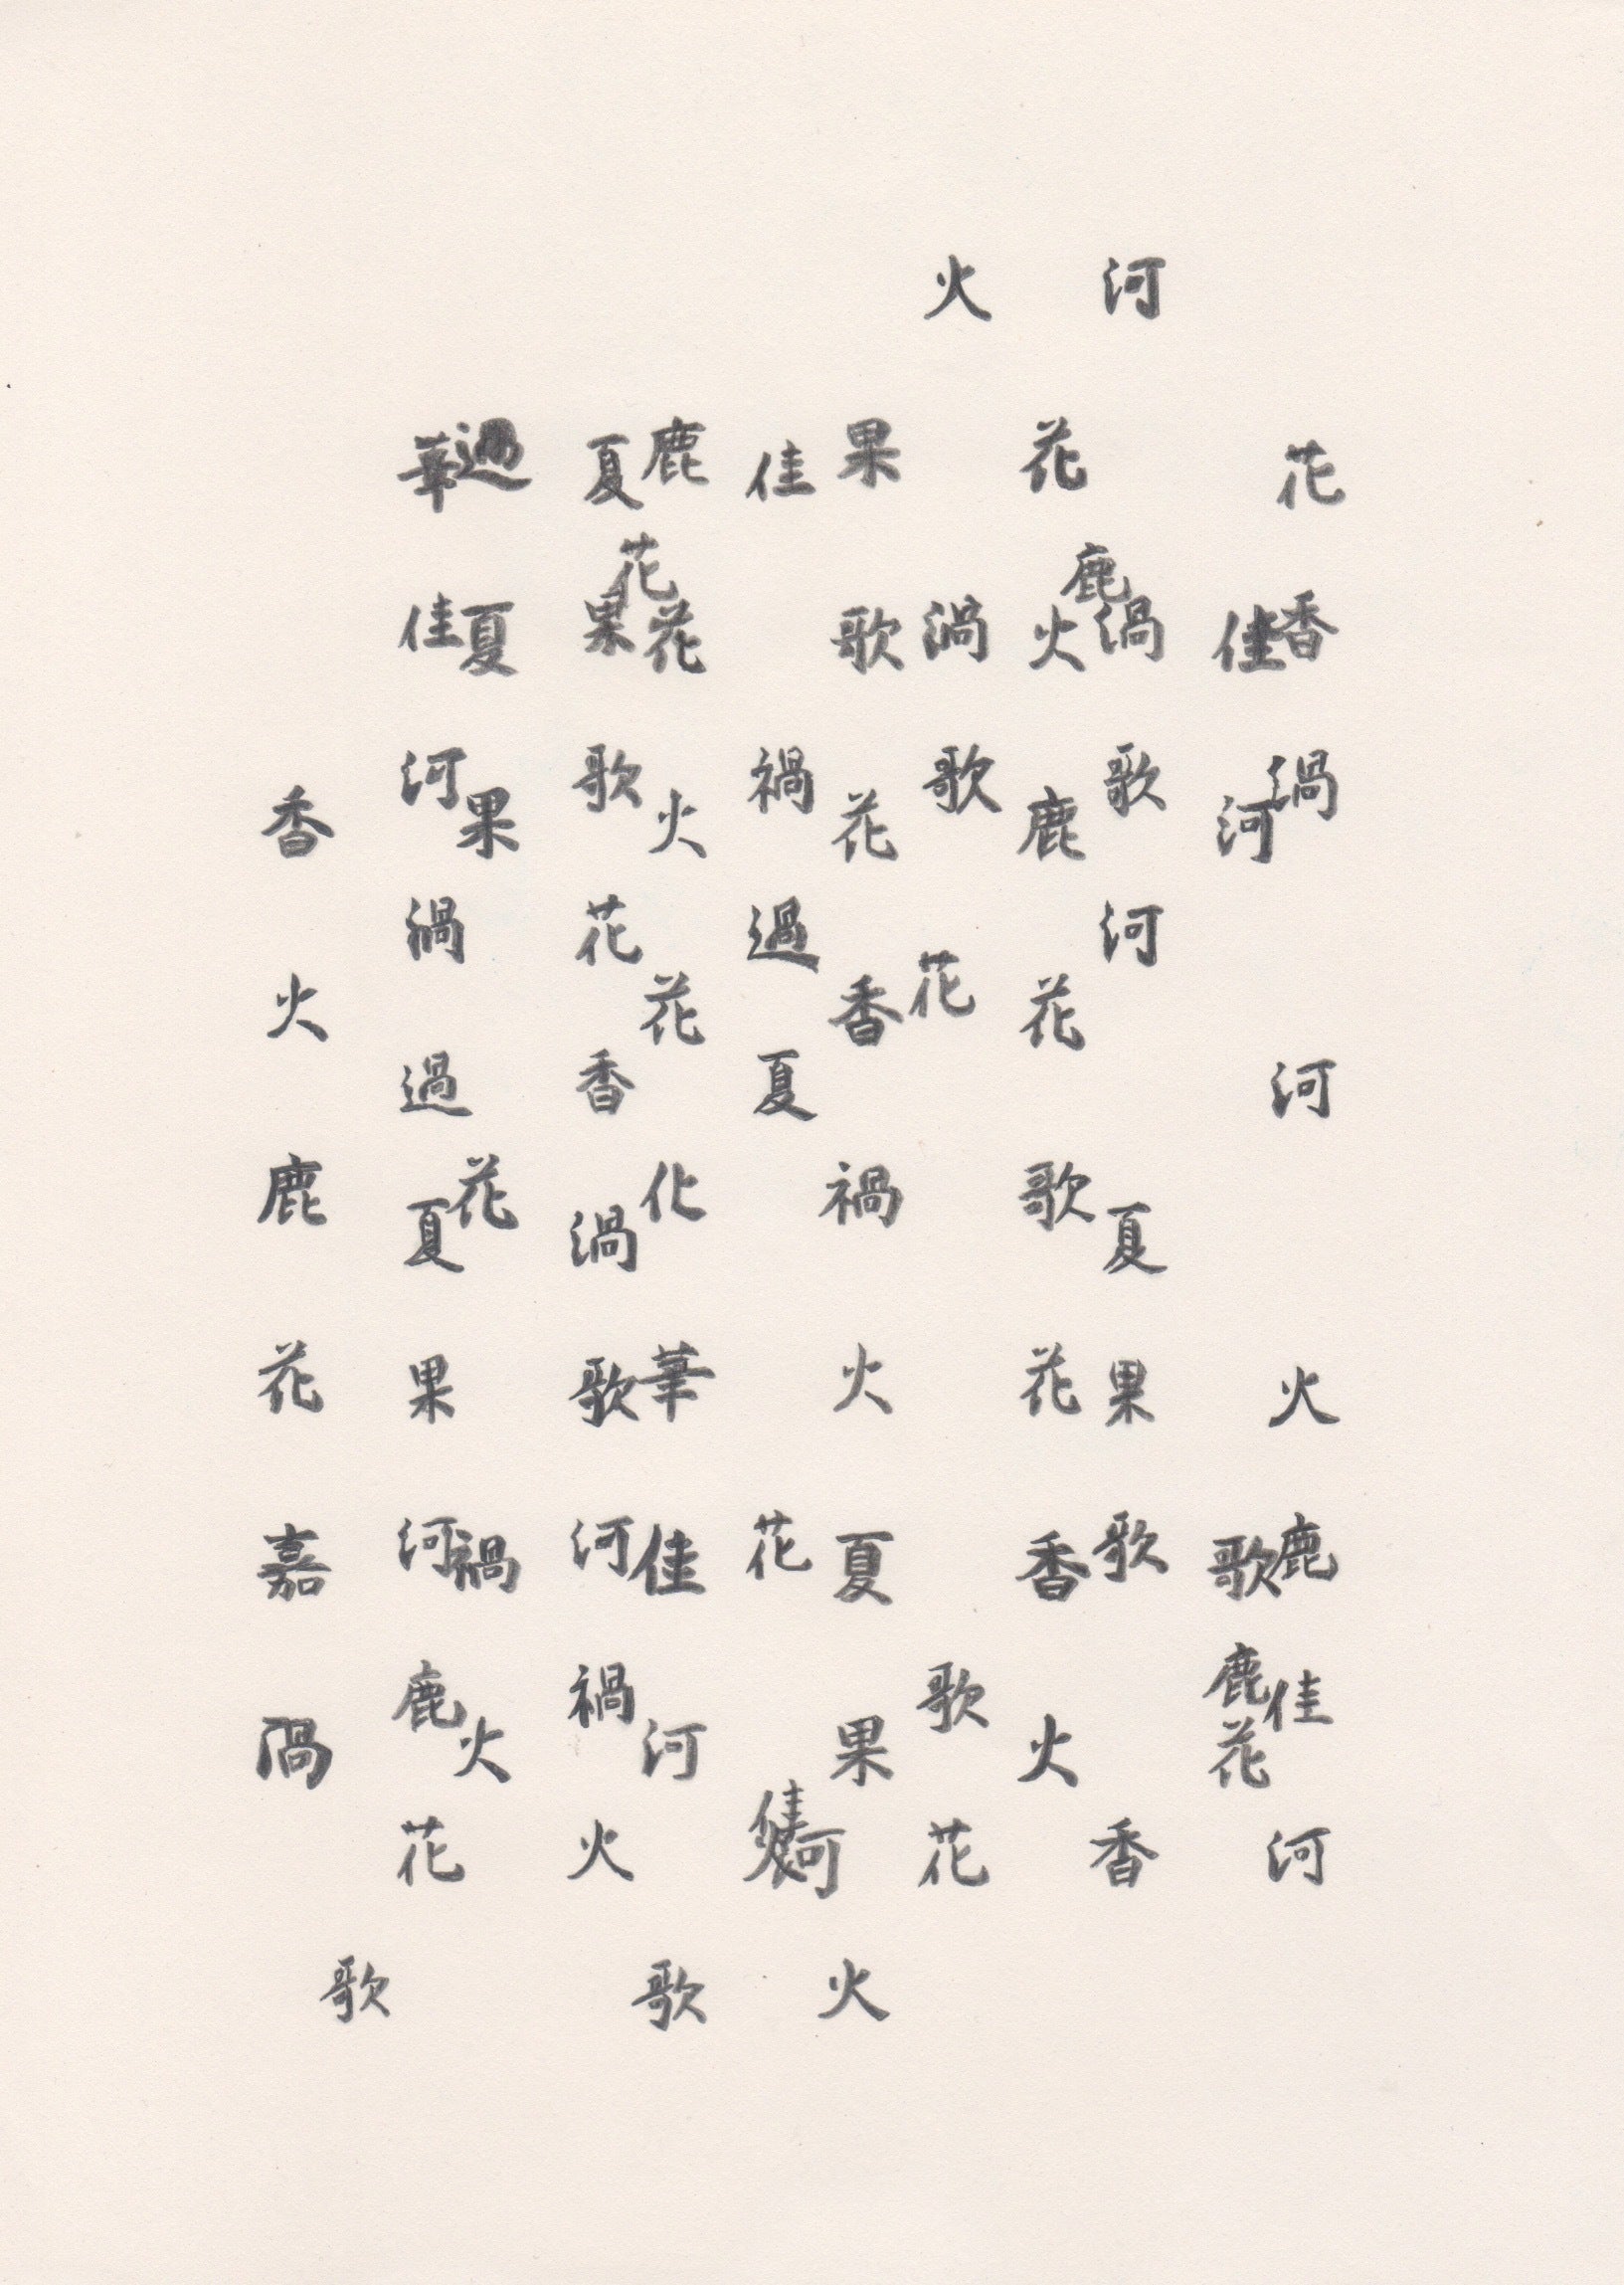 花香渦河火鹿佳河
佳河歌鹿花
河鹿渦歌河夏果歌香
花火鹿花歌花香火
火渦歌花歌花
果歌花香禍火夏果火
佳禍過夏花佳河
鹿花火花化華佳河歌
夏花果歌花香渦歌河禍火
過夏果花禍火
華佳河渦過夏果河鹿花
歌
香火鹿花嘉